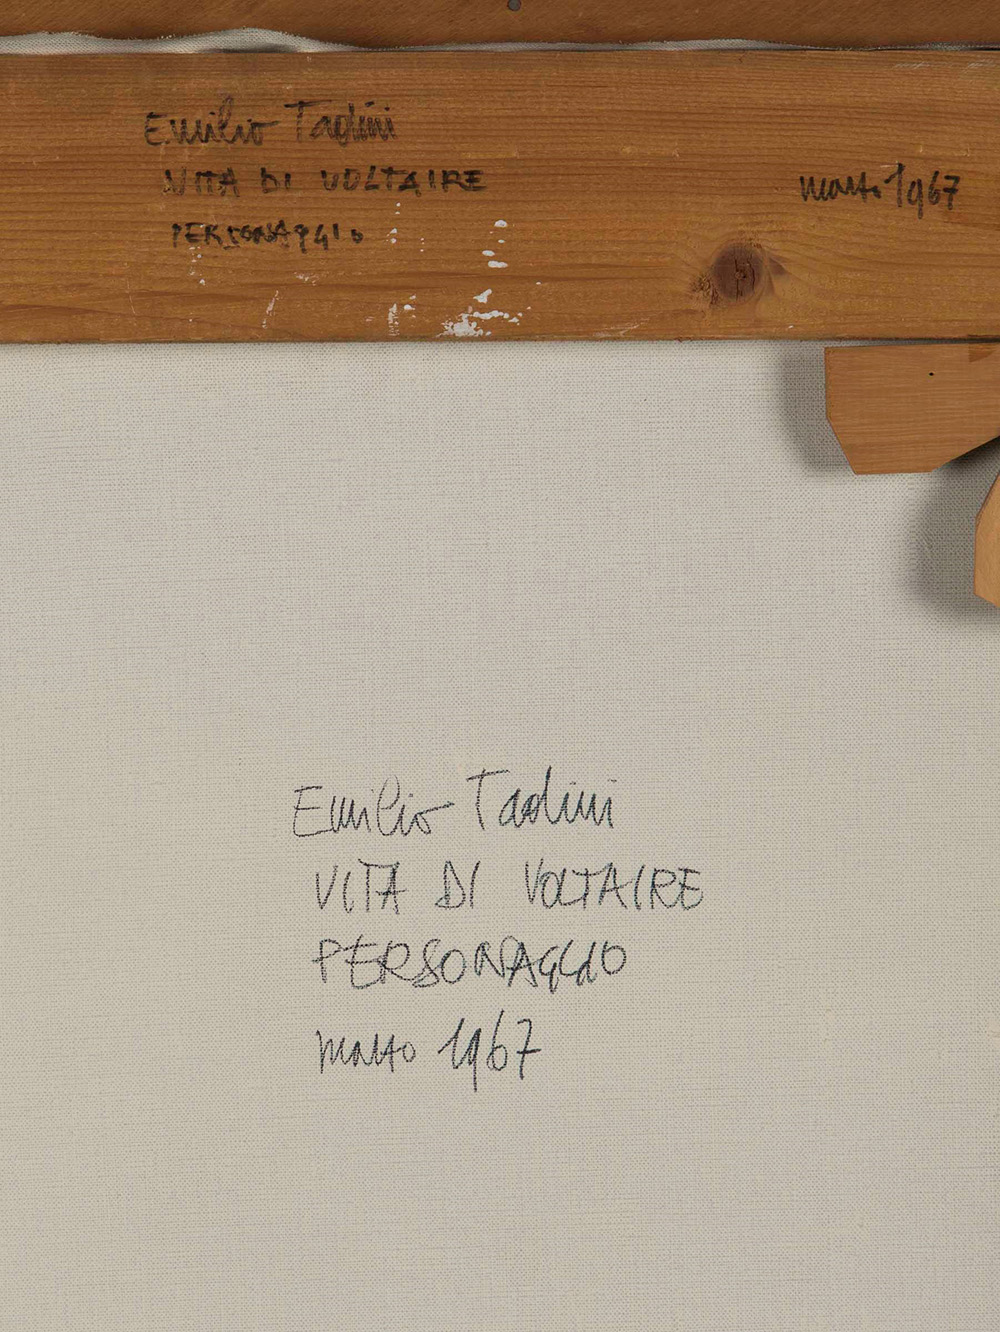 Emilio Tadini
VITA DI VOLTAIRE
PERSONAGGIO
marzo 1967
Emilio Tadini
VITA DI VOLTAIRE
PERSONAGGIO
marzo 1967